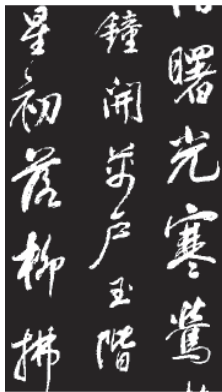 曙光寒鶯
鐘開萬户玉階
星初落柳拂